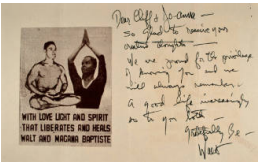 WITH LOVE LIGHT AND SPIRIT
THAT LIBERATES AND HEALS
WALT AND MAGANA BAPTISTE
Dear Cliff & Jo-anne —
So glad to receive your
thoughts —
We are proud for the privilege
of knowing you and we
will always remember —
A good life increasingly
so to you both —
Gratefully Be —
Walt